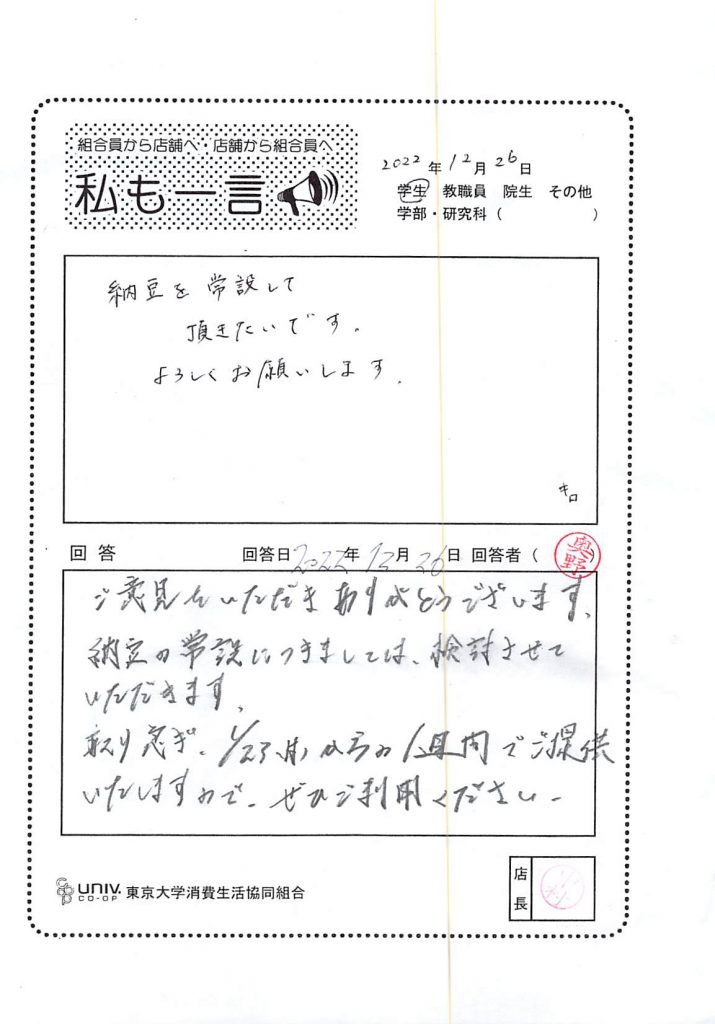 組合員から店舗へ・店舗から組合員へ
私も一言
2022年12月26日
学生 教職員 院生 その他
学部・研究科（ ）
納豆を常設して
頂きたいです。
よろしくお願いします。
回答 回答日2022年12月26日 回答者（奥野）
ご意見をいただきありがとうございます。
納豆の常設につきましては、検討させて
いただきます。
取り急ぎ、1/23(月)からの1週間でご提供
いたしますので、ぜひご利用ください。
UNIV. CO-OP 東京大学消費生活協同組合
店長